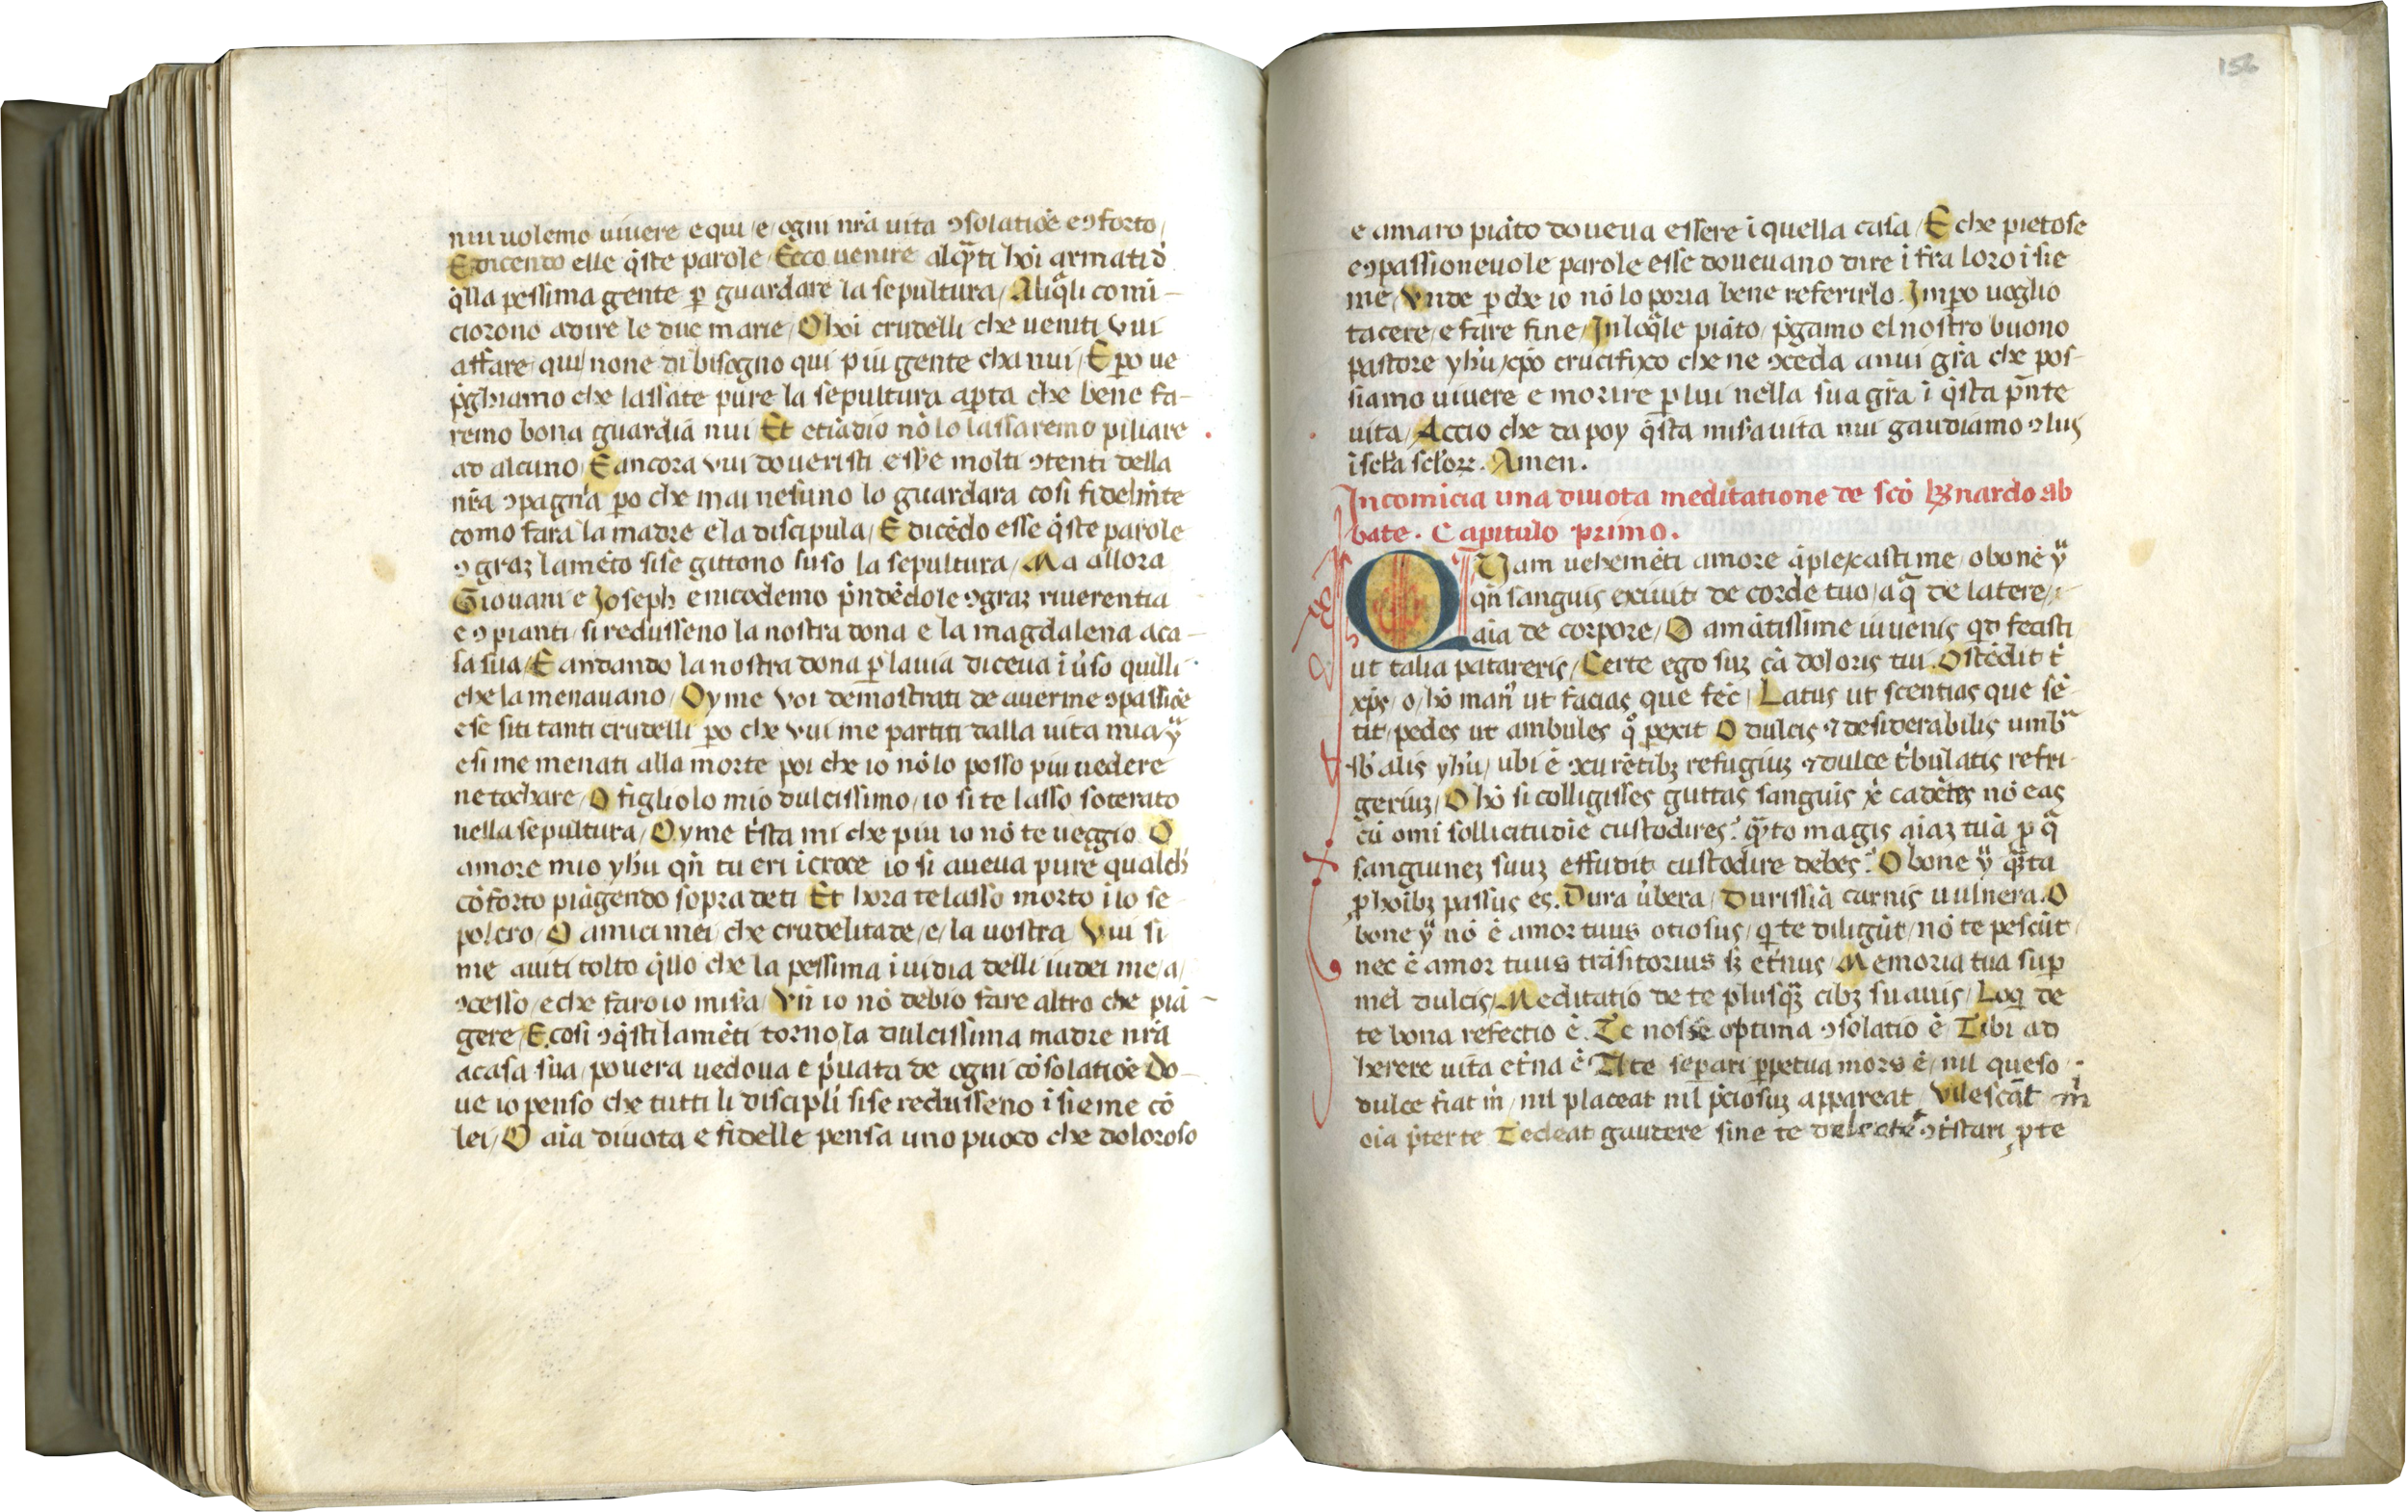 nui uolemo uiuere e qui / e / ogni nr̄a uita ꝯsolatiōe e ꝯforto /
E dicendo elle q̄ste parole / Ecco uenire alq̄ti hoī armati d̄
q̄lla pessima gente ꝑ guardare la sepultura / Aliq̄li comī-
ciorono a dire le due marie / O hoī crudelli che ueniti vui
affare qui / none di bisogno qui piu gente cha nui / E ꝑo ue
p̄ghiamo che lassate pure la sepultura aꝑta che bene fa-
remo bona guardiā nui / Et etiādio nō lo lassaremo piliare
ad alcuno / E ancora vui doueristi esꝰe molti ꝯtenti della
nr̄a ꝯpagnīa ꝑo che mai nesuno lo guardara cosi fidelmēte
como fara la madre e la discipula / E dicēdo esse q̄ste parole
ꝯ graꝫ lamēto si se gittono suso la sepultura / Ma allora
Giouanī e Joseph e nicodemo p̄ndēdole ꝯ graꝫ riuerentia
e ꝯ pianti / si redusseno la nostra dona e la magdalena a ca-
sa sua / E andando la nostra dona ꝑ la uia diceua ī u̓so quilli
che la menauano / Oyme voi demostrati de auerme ꝯpassiōe
e se siti tanti crudelli ꝑo che vui me partiti dalla uita mia yͧ
e si me menati alla morte poi che io nō lo posso piu uedere
ne tochare / O figliolo mio dulcissimo / io si te lasso soterato
nella sepultura / Oyme t̓sta mi che piu io nō te ueggio O
amore mio yhū qn̄ tu eri ī croce io si aueua pure qualch̓
cōforto piāgendo sopra de ti Et hora te lasso morto ī lo se
polcro / O amici mei che crudelitade / e / la uostra Vui si
me auiti tolto q̄llo che la pessima īuidia delli iudei me / a /
ꝯcesso / e che faro io misa̓ / Vn̄ io nō debio fare altro che piā-
gere / E cosi ꝯ q̄sti lamēti torno la dulcissima madre nr̄a
a casa sua / pouera uedoua e p̓uata de ogni cōsolatiōe Do-
ue io penso che tutti li discipli̓ si se redusseno ī sieme cō
lei / O aīa diuota e fidelle pensa uno puoco che doloroso
156
e amaro piāto doueua essere ī quella casa / E che pietose
e ꝯpassioneuole parole esse doueuano dire ī fra loro ī sie
me / Vnde ꝑ che io nō lo poria bene referirlo . Imꝑo uoglio
tacere / e fare fine / In loq̄le piāto / p̄gamo el nostro buono
pastore yhū xp̄o crucifixo che ne ꝯceda a nui gr̄a che pos-
siamo uiuere e morire ꝑ lui nella sua gr̄a ī q̄sta p̄nte
uita / Accio che da poy q̄sta misa̓ uita nui gaudiamo ꝯ lui
ī sc̄la sc̄loꝝ . Amen .
Incomicia una diuota meditatione de scō B̓nardo ab
bate . Capitulo primo .
QUam uehemēti amore āplexasti me o bone yͧ
qn̄ sanguis exiuit de corde tuo / aq̄ de latere /
aīa de corpore / O amātissime iuuenis qd fecisti
ut talia patareris / Certe ego suꝫ cā doloris tui . Ostēdit t̓
xp̄s / o / hō man̓ ut facias que fēc / Latus ut scentias que sē-
tit / pedes ut ambules qͦ ꝑexit O dulcis ⁊ desiderabilis umbᵃ
sb̓ alis yhū / ubi ē ꝯcurētibꝫ refugiuꝫ ⁊ dulce t̓bulatis refri-
geriuꝫ / O hō si colligisses guttas sanguīs xp̄ē cadētes nō eas
cū omī sollicitudīe custodires ? qͣto magis aīaꝫ tuā ꝓ qͣ
sanguineꝫ suuꝫ effudit custodire debes ? O bone yͧ qͣta
ꝓ hoībꝫ passus es . Dura u̓bera / Durissīa carnis uulnera . O
bone yͧ nō ē amor tuus otiosus / qi te diligūt / nō te pescūt
nec ē amor tuus trāsitorius sꝫ et̓nus / Memoria tua suꝑ
mel dulcis / Meditatio de te plusqͣꝫ cibꝫ suauis / Loqi de
te bona refectio ē . Te nosse optima ꝯsolatio ē Tibi ad
herere uita et̓na ē A te separi ꝑpetua mors ē / nil queso
dulce fiat m̄ / nil placeat nil p̄ciosuꝫ appareat / Vilescāt m̄
oīa p̄ter te Tedeat gaudere sine te delectē ꝯt̓stari ꝓ te